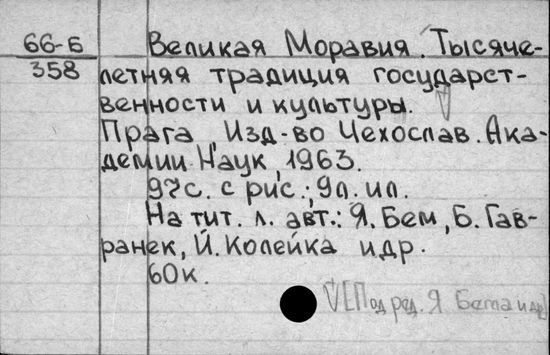 66-Б
358
Великая Моравия. Тысяче-
летняя традиция государст-
венности и культуры.
Прага, Изд-во Чехослав. Ака-
демии Наук, 1963.
97с. с рис.; 9л. ил.
На тит. л. авт.: Я. Бем, Б. Гав-
ранек, Й. Колейка и др.
60к.
V [Под ред. Я Бема и др]